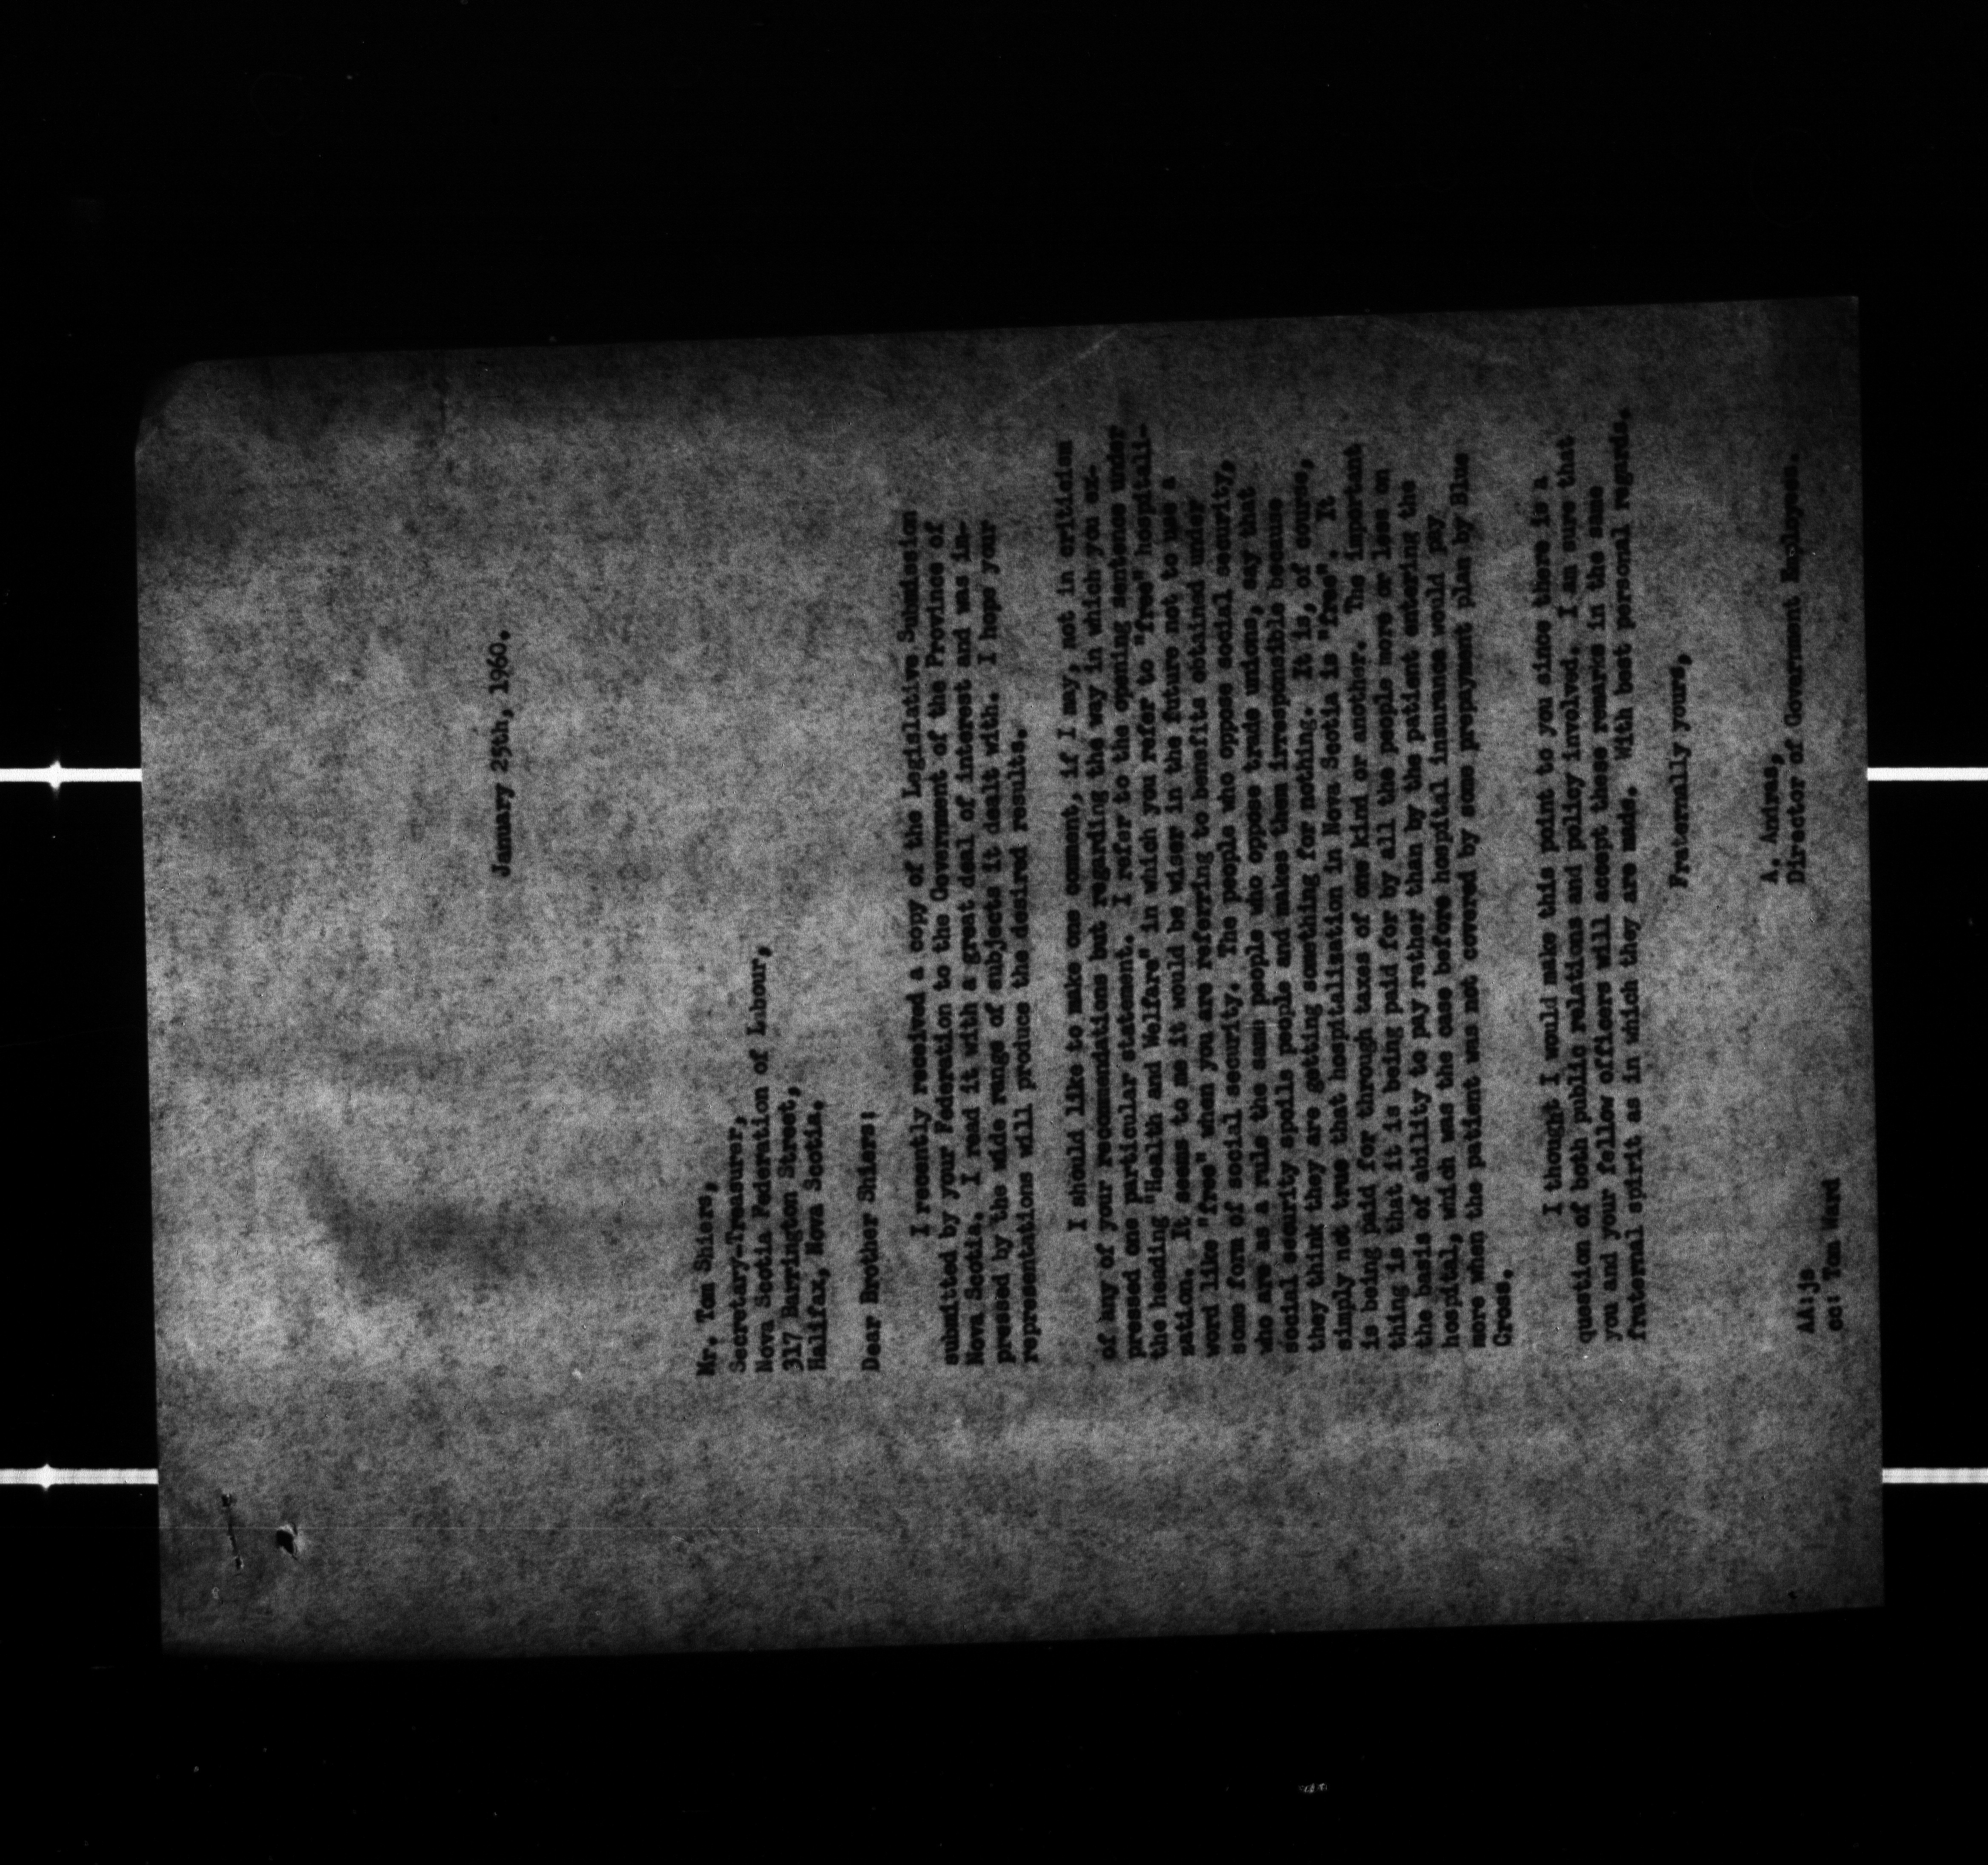 January 25th, 1960.
Mr. Tom Shiers,
Secretary-Treasurer,
Nova Scotia Federation of Labour,
317 Barrington Street,
Halifax, Nova Scotia.
Dear Brother Shiers:
I recently received a copy of the Legislative Submission
submitted by your Federation to the Government of the Province of
Nova Scotia. I read it with a great deal of interest and was im-
pressed by the wide range of subjects it dealt with. I hope your
representations will produce the desired results.
I should like to make one comment, if I may, not in criticism
of any of your recommendations but regarding the way in which you ex-
pressed one particular statement. I refer to the opening sentence under
the heading "Health and Welfare" in which you refer to "free" hospitali-
zation. It seems to me it would be wiser in the future not to use a
word like "free" when you are referring to benefits obtained under
some form of social security. The people who oppose social security,
who are as a rule the same people who oppose trade unions, say that
social security spoils people and makes them irresponsible because
they think they are getting something for nothing. It is, of course,
simply not true that hospitalization in Nova Scotia is "free". It
is being paid for through taxes of one kind or another. The important
thing is that it is being paid for by all the people more or less on
the basis of ability to pay rather than by the patient entering the
hospital, which was the case before hospital insurance would pay
more when the patient was not covered by some prepayment plan by Blue
Cross.
I thought I would make this point to you since there is a
question of both public relations and policy involved. I am sure that
you and your fellow officers will accept these remarks in the same
fraternal spirit as in which they are made. With best personal regards.
Fraternally yours,
A. Andras,
Director of Government Employees.
AA:js
cc: Tom Ward